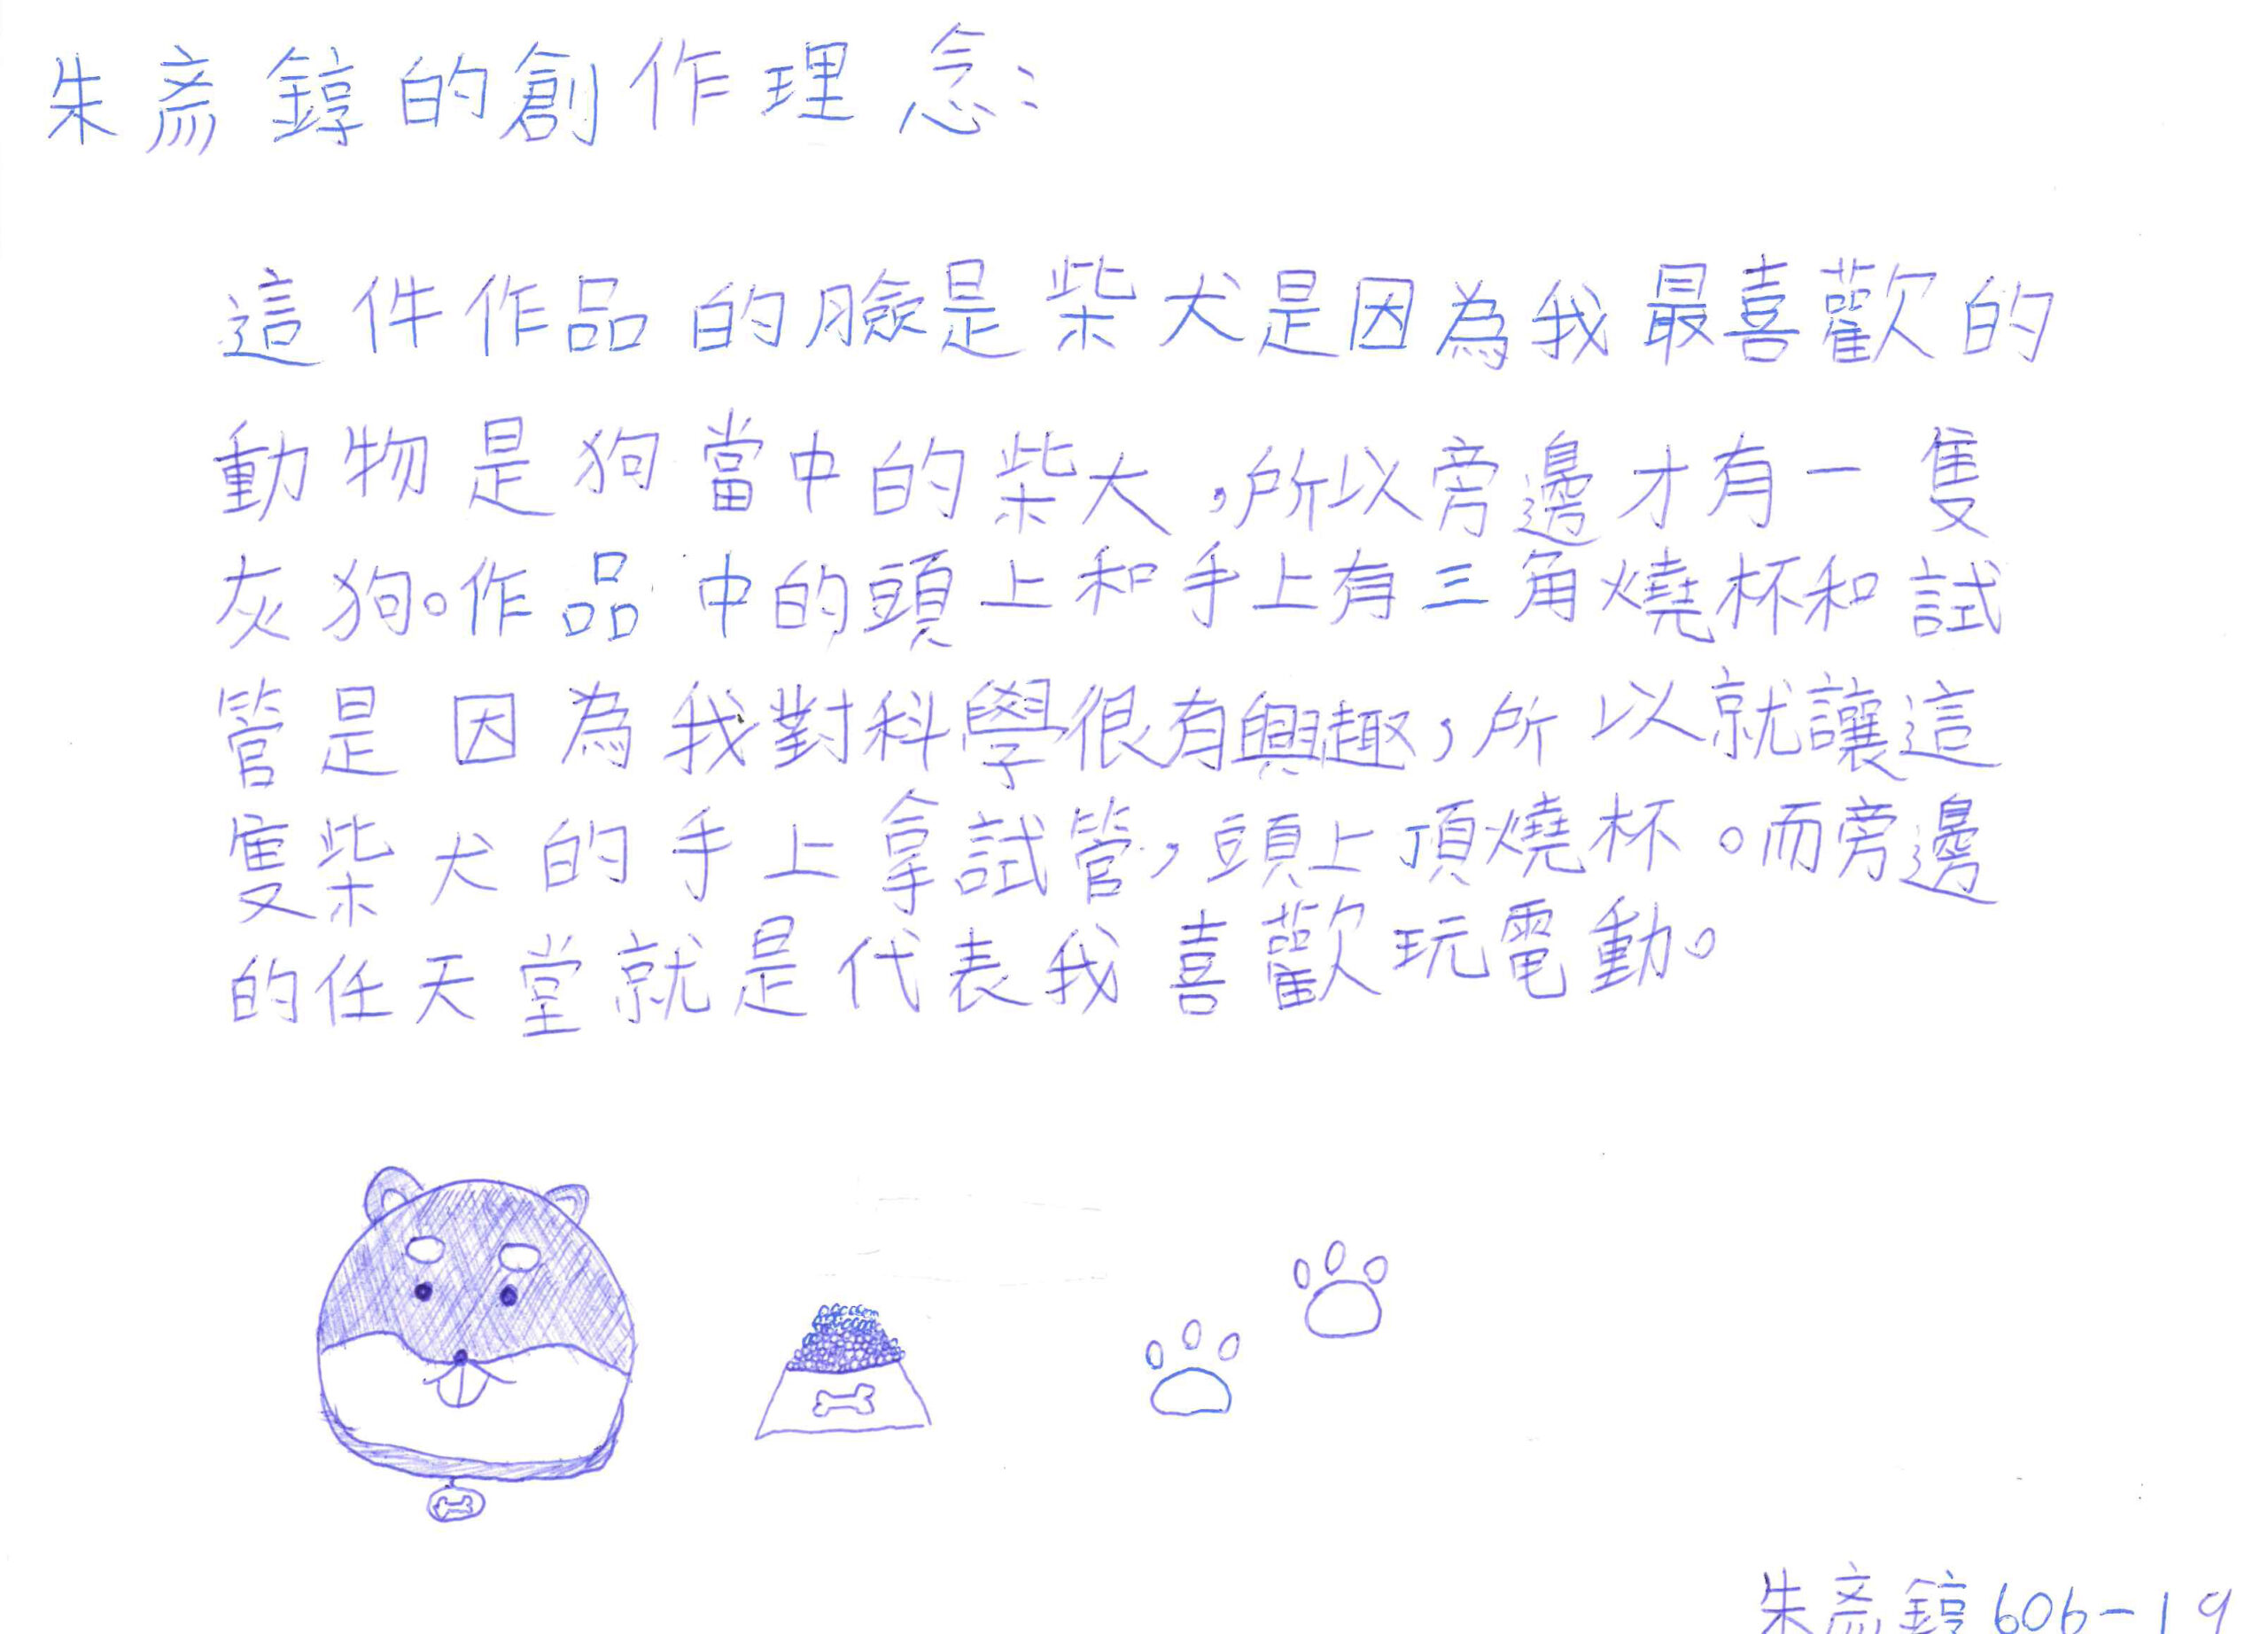 朱彥錞的創作理念:
這件作品的臉是柴犬是因為我最喜歡的
動物是狗當中的柴大,所以旁邊才有一隻
灰狗。作品中的頭上和手上有三角燒杯和試
管是因為我對科學很有興趣,所以就讓這
隻柴犬的手上拿試管,頭上頂燒杯。而旁邊
的任天堂就是代表我喜歡玩電動。
朱彥錞606-19